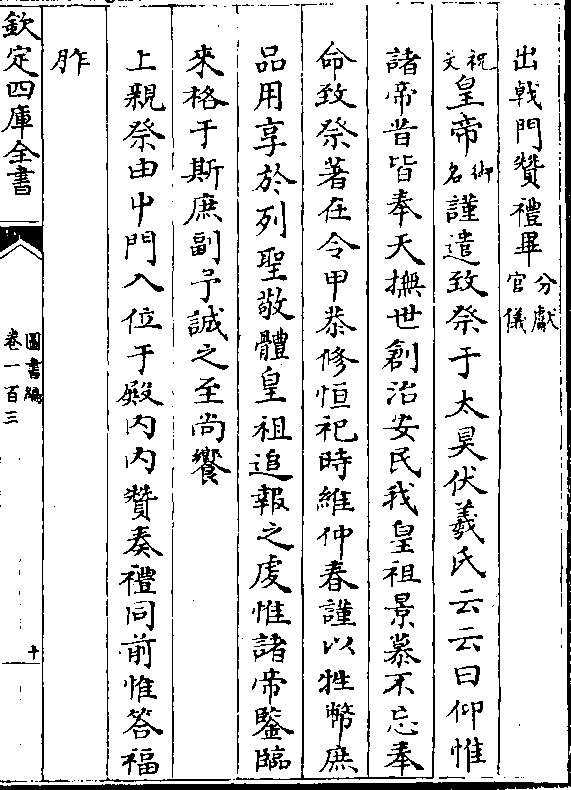 出戟門贊禮畢分獻官儀
祝文皇帝御名謹遣致祭于太昊伏羲氏云云曰仰惟
諸帝昔皆奉天撫世創治安民我皇祖景慕不忘奉
命致祭著在令甲恭修恒祀時維仲春謹以牲幣庶
品用享於列聖敬體皇祖追報之虔惟諸帝鑒臨
來格于斯庶副予誠之至尚饗
上親祭由中門入位于殿內內贊奏禮同前惟答福
胙
欽定四庫全書
圖書編
卷一百三
十